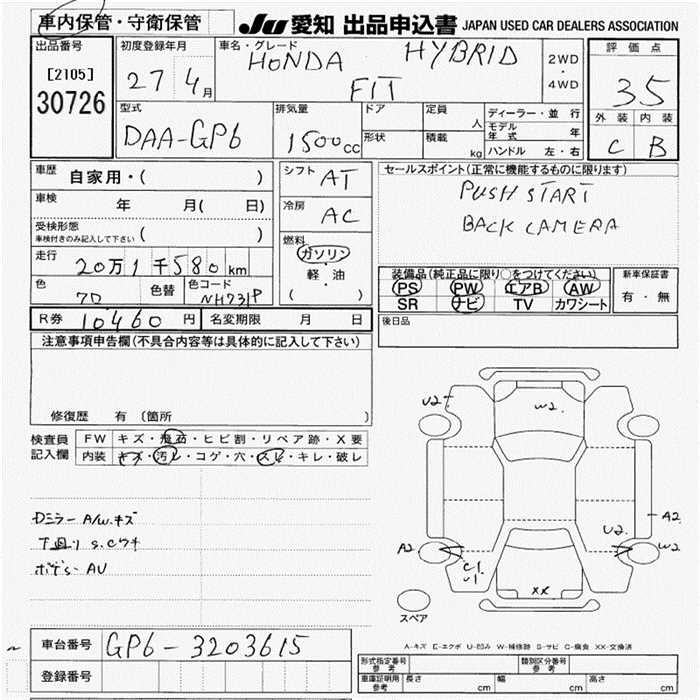 車内保管・守衛保管 JU 愛知 出品申込書 JAPAN USED CAR DEALERS ASSOCIATION
出品番号 初度登録年月 車名・グレード 2WD ・ 4WD 評価点
[2105] 27 4月 HONDA HYBRID 3.5
30726 FIT
型式 排気量 ドア 定員 人 ディーラー・並行 外装 内装
DAA-GP6 1500cc 形状 積載 kg モデル年式 年 C B
ハンドル 左・右
車歴 自家用・( ) シフト AT セールスポイント(正常に機能するものに限ります)
車検 年 月( 日) 冷房 AC PUSH START
受検形態 ( ) BACK CAMERA
車検付きのみ記入して下さい
走行 20万1千580km 燃料 ガソリン 軽・油 ( )
装備品(純正品に限り○をつけてください) 新車保証書
PS PW エアB AW 有・無
SR ナビ TV カワシート
色 色替 色コード NH731P
R券 10460円 名変期限 月 日 後日品
注意事項申告欄(不具合内容等は具体的に記入して下さい)
修復歴 有 (箇所 )
検査員記入欄 FW キズ・飛石・ヒビ割・リペア跡・X要
内装 キズ・汚レ・コゲ・穴・スレ・キレ・破レ
U2 W2
Dミラー A/W.キズ
下廻り S.Cウキ
ボデs AU
A2
U2
A2 W2
C1
U1
XX
スペア
A-キズ E-エクボ U-凹み W-補修跡 S-サビ C-腐食 XX-交換済
車台番号 GP6-3203615
登録番号
形式指定番号 参考 類別区分番号 参考
車庫証明用 参考 長さ cm 幅 cm 高さ cm